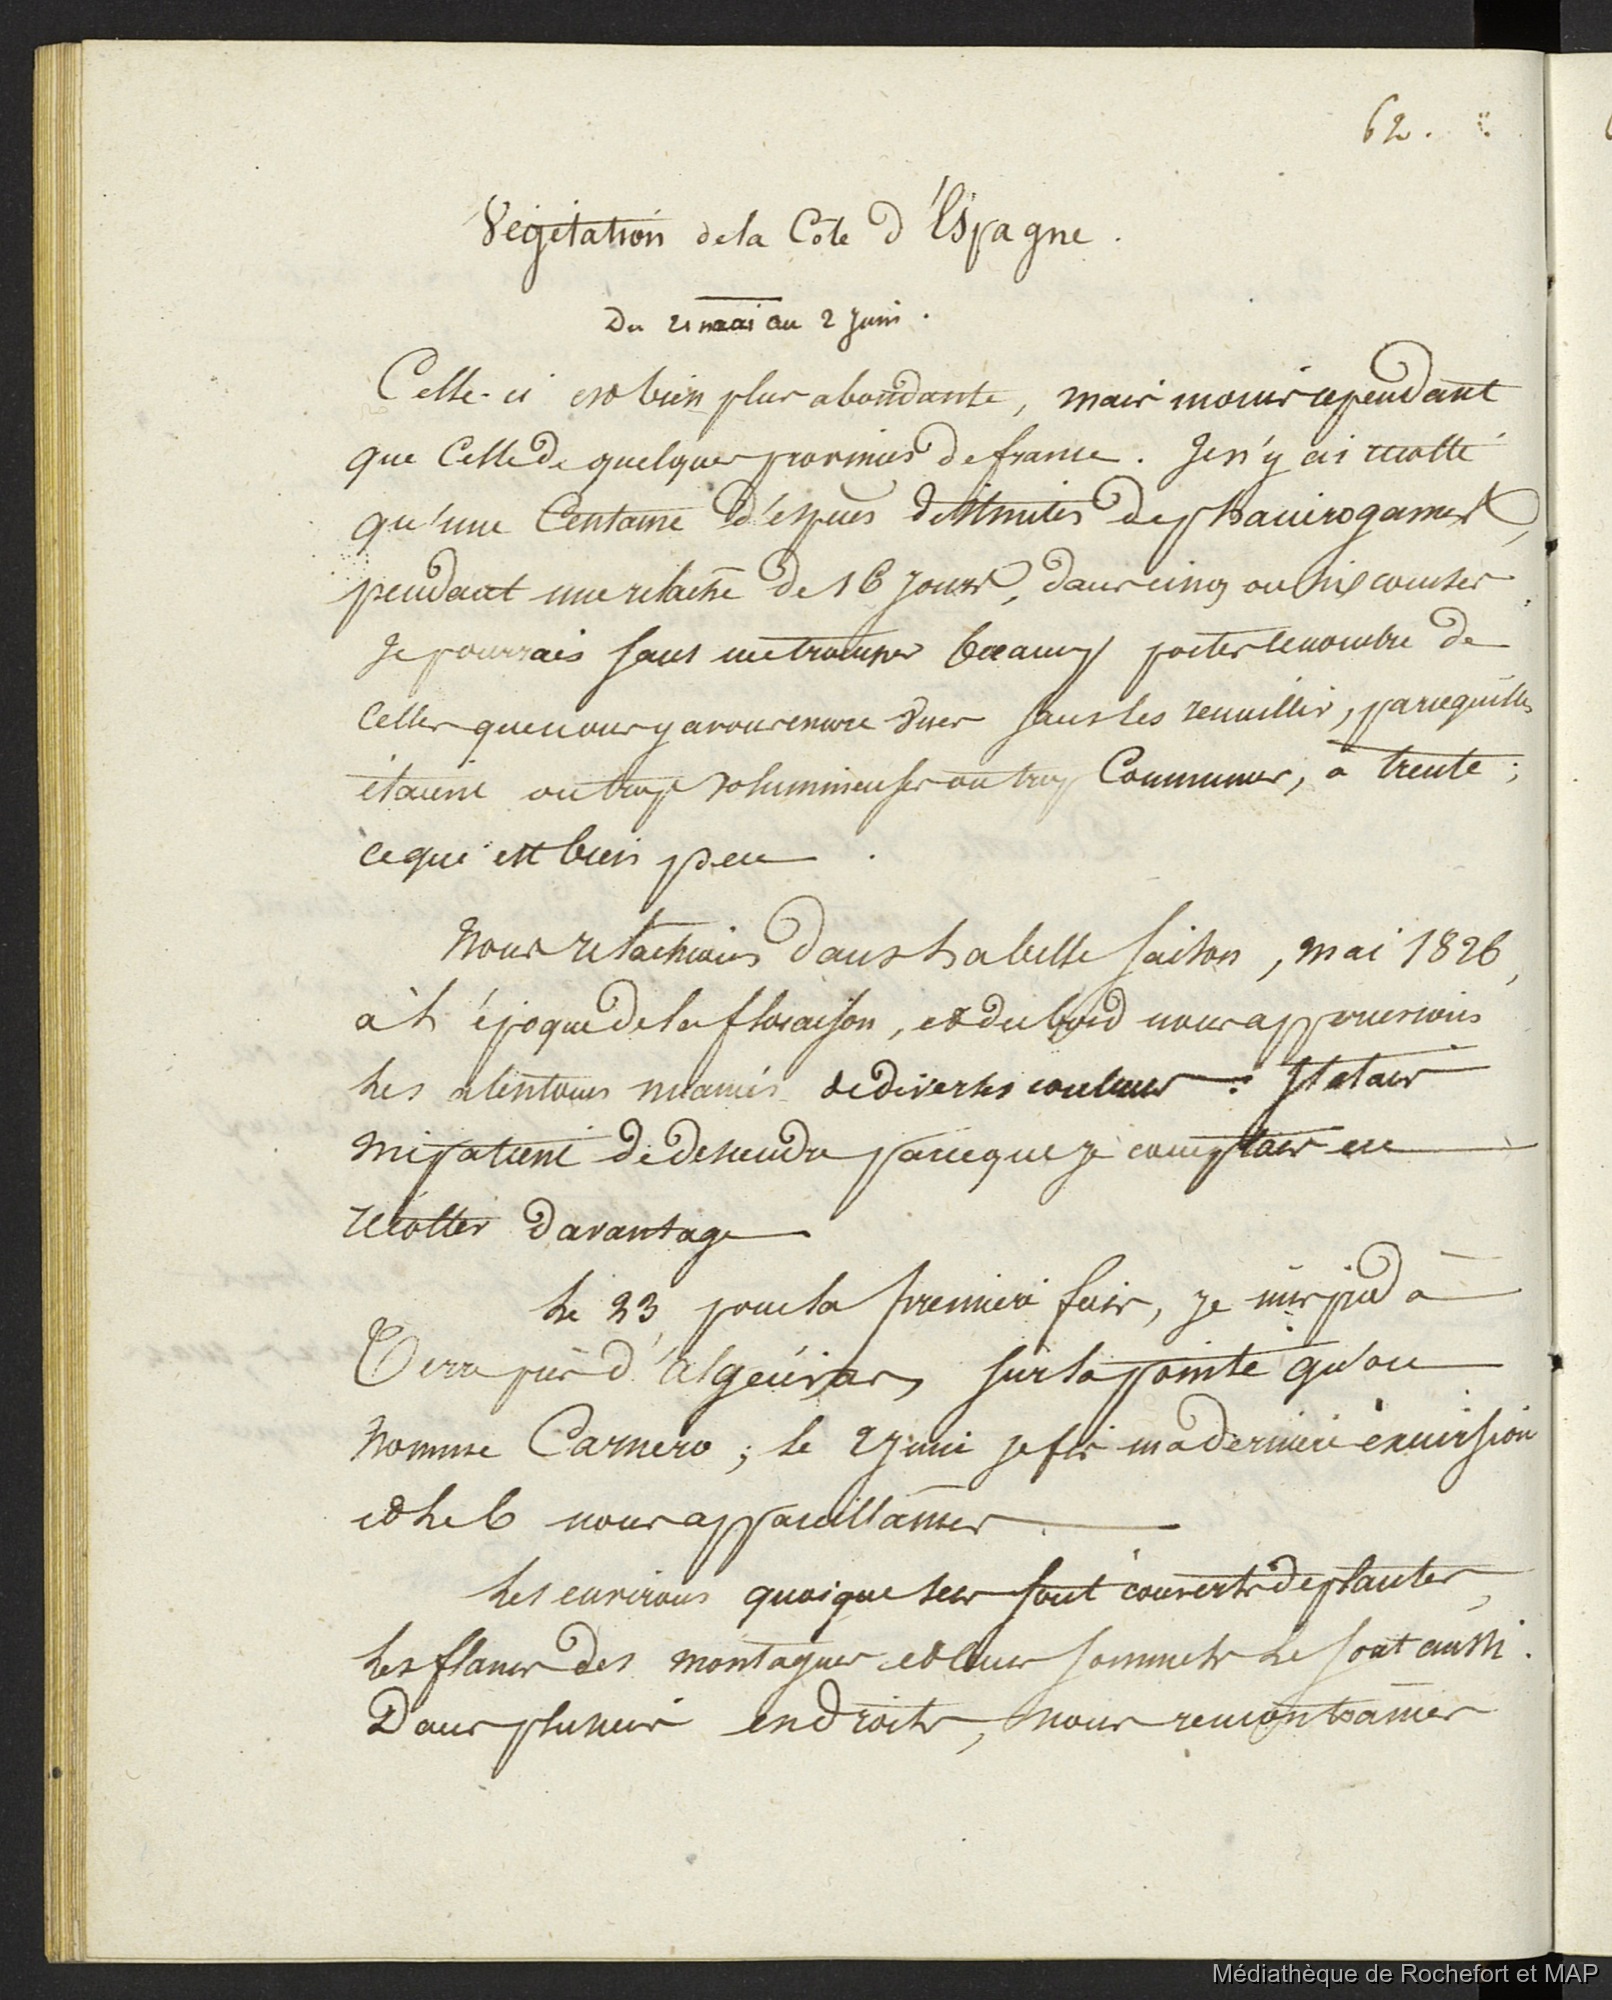 62.
Végétation de la Côte d'Espagne.
Du 21 mai au 2 Juin.
Celle-ci est bien plus abondante, mais moins cependant
que Celle de quelques provinces de france. Je n'y ai récolté
qu'une Centaine d'espèces distinctes de phanérogames,
pendant une relâche de 16 jours, dans cinq ou six courses
Je pourrais sans me tromper beaucoup porter le nombre de
Celles que nous y avons encore vues sans les recueillir, parcequ'elles
étaient ou trop volumineuses ou trop Communes, à trente;
ce qui est bien peu.
Nous relachions dans la belle saison, mai 1826,
à l'époque de la floraison, et du bord nous appercevions
les alentours nuancés de diverses couleurs: J'étais
impatient de descendre parceque je comptais en
récolter davantage
Le 23, pour la premiere fois, je mis pied à
Terre près d'Algéciras, sur la pointe qu'on
nomme Carnero; le 2 juin je fis ma derniere excursion
et le 6 nous appareillâmes.
Les environs quoique secs sont couverts de plantes,
les flancs des montagnes et leurs sommets le sont aussi.
Dans plusieurs endroits, nous rencontrâmes
Médiathèque de Rochefort et MAP